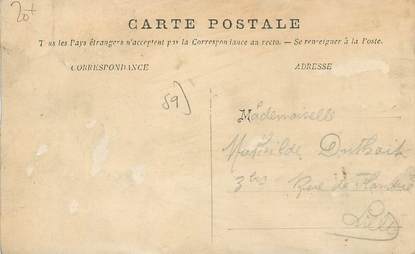 20+
CARTE POSTALE
Tous les Pays étrangers n'acceptent pas la Correspondance au recto. — Se renseigner à la Poste.
CORRESPONDANCE
ADRESSE
59)
Mademoiselle
Mathilde Duthoit
3 bis Rue de Flandre
Lille